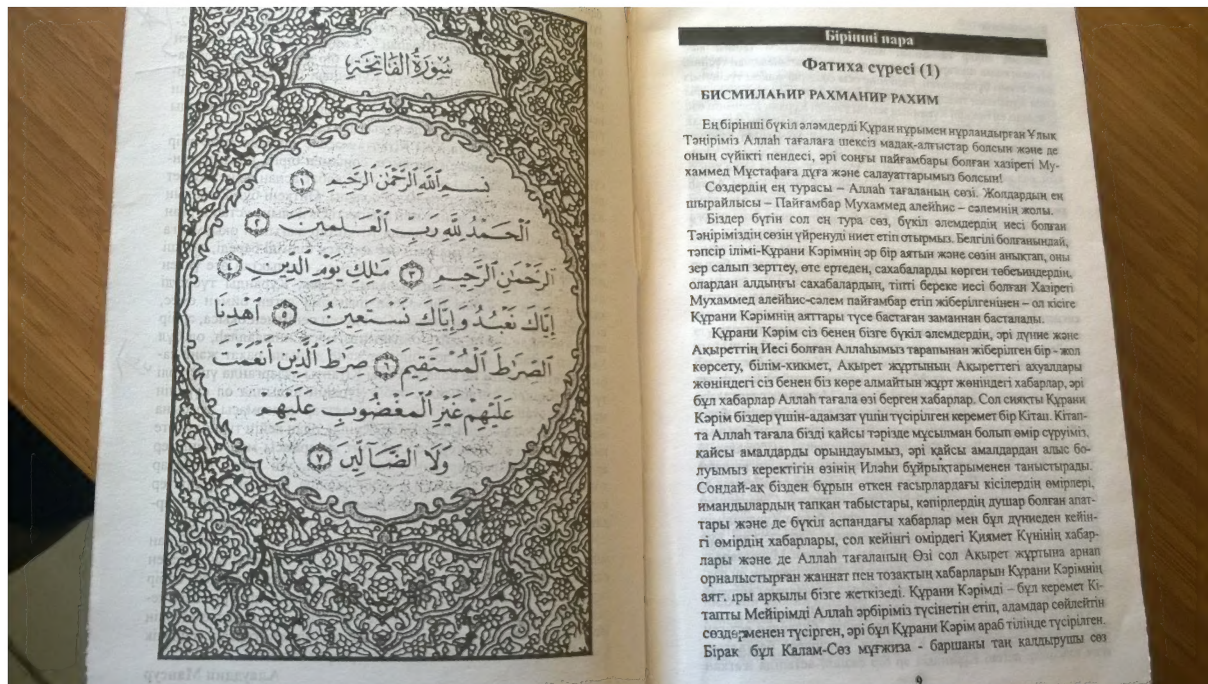 سُورَةُ الفَاتِحَةِ
بِسْمِ ٱللَّهِ ٱلرَّحْمَٰنِ ٱلرَّحِيمِ ١
ٱلْحَمْدُ لِلَّهِ رَبِّ ٱلْعَٰلَمِينَ ٢
ٱلرَّحْمَٰنِ ٱلرَّحِيمِ ٣ مَٰلِكِ يَوْمِ ٱلدِّينِ ٤
إِيَّاكَ نَعْبُدُ وَإِيَّاكَ نَسْتَعِينُ ٥ ٱهْدِنَا
ٱلصِّرَٰطَ ٱلْمُسْتَقِيمَ ٦ صِرَٰطَ ٱلَّذِينَ أَنْعَمْتَ
عَلَيْهِمْ غَيْرِ ٱلْمَغْضُوبِ عَلَيْهِمْ
وَلَا ٱلضَّآلِّينَ ٧
Бірінші пара
Фатиха сүресі (1)
БИСМИЛАҺИР РАХМАНИР РАХИМ
Ең бірінші бүкіл әлемдерді Құран нұрымен нұрландырған Ұлық
Тәңіріміз Аллаһ тағалаға шексіз мадақ-алғыстар болсын және де
оның сүйікті пендесі, әрі соңғы пайғамбары болған хазіреті Му-
хаммед Мұстафаға дұға және салауаттарымыз болсын!
Сөздердің ең турасы – Аллаһ тағаланың сөзі. Жолдардың ең
шырайлысы – Пайғамбар Мухаммед алейһис – сәлемнің жолы.
Біздер бүгін сол ең тура сөз, бүкіл әлемдердің иесі болған
Тәңіріміздің сөзін үйренуді ниет етіп отырмыз. Белгілі болғанындай,
тәпсір ілімі-Құрани Кәрімнің әр бір аятын және сөзін анықтап, оны
зер салып зерттеу, өте ертеден, сахабаларды көрген төбеъиндердің,
олардан алдыңғы сахабалардың, тіпті береке иесі болған Хазіреті
Мухаммед алейһис-сәлем пайғамбар етіп жіберілгенінен – ол кісіге
Құрани Кәрімнің аяттары түсе бастаған заманнан басталады.
Құрани Кәрім сіз бенен бізге бүкіл әлемдердің, әрі дүние және
Ақыреттің Иесі болған Аллаһымыз тарапынан жіберілген бір - жол
көрсету, білім-хикмет, Ақырет жұртының Ақыреттегі ахуалдары
жөніндегі сіз бенен біз көре алмайтын жұрт жөніндегі хабарлар, әрі
бұл хабарлар Аллаһ тағала өзі берген хабарлар. Сол сияқты Құрани
Кәрім біздер үшін-адамзат үшін түсірілген керемет бір Кітап. Кітап-
та Аллаһ тағала бізді қайсы тәрізде мұсылман болып өмір сүруіміз,
қайсы амалдарды орындауымыз, әрі қайсы амалдардан алыс бо-
луымыз керектігін өзінің Илаһи бұйрықтарыменен таныстырады.
Сондай-ақ бізден бұрын өткен ғасырлардағы кісілердің өмірлері,
имандылардың тапқан табыстары, кәпірлердің душар болған апат-
тары және де бүкіл аспандағы хабарлар мен бұл дүниеден кейін-
гі өмірдің хабарлары, сол кейінгі өмірдегі Қиямет Күнінің хабар-
лары және де Аллаһ тағаланың Өзі сол Ақырет жұртына арнап
орналыстырған жаннат пен тозақтың хабарларын Құрани Кәрімнің
арқылы бізге жеткізеді. Құрани Кәрімді – бұл керемет Кі-
тапты Мейірімді Аллаһ әрбіріміз түсінетін етіп, адамдар сөйлейтін
сөздерменен түсірген, әрі бұл Құрани Кәрім араб тілінде түсірілген.
Бірақ бұл Калам-Сөз мұғжиза - баршаны таң қалдырушы сөз
9